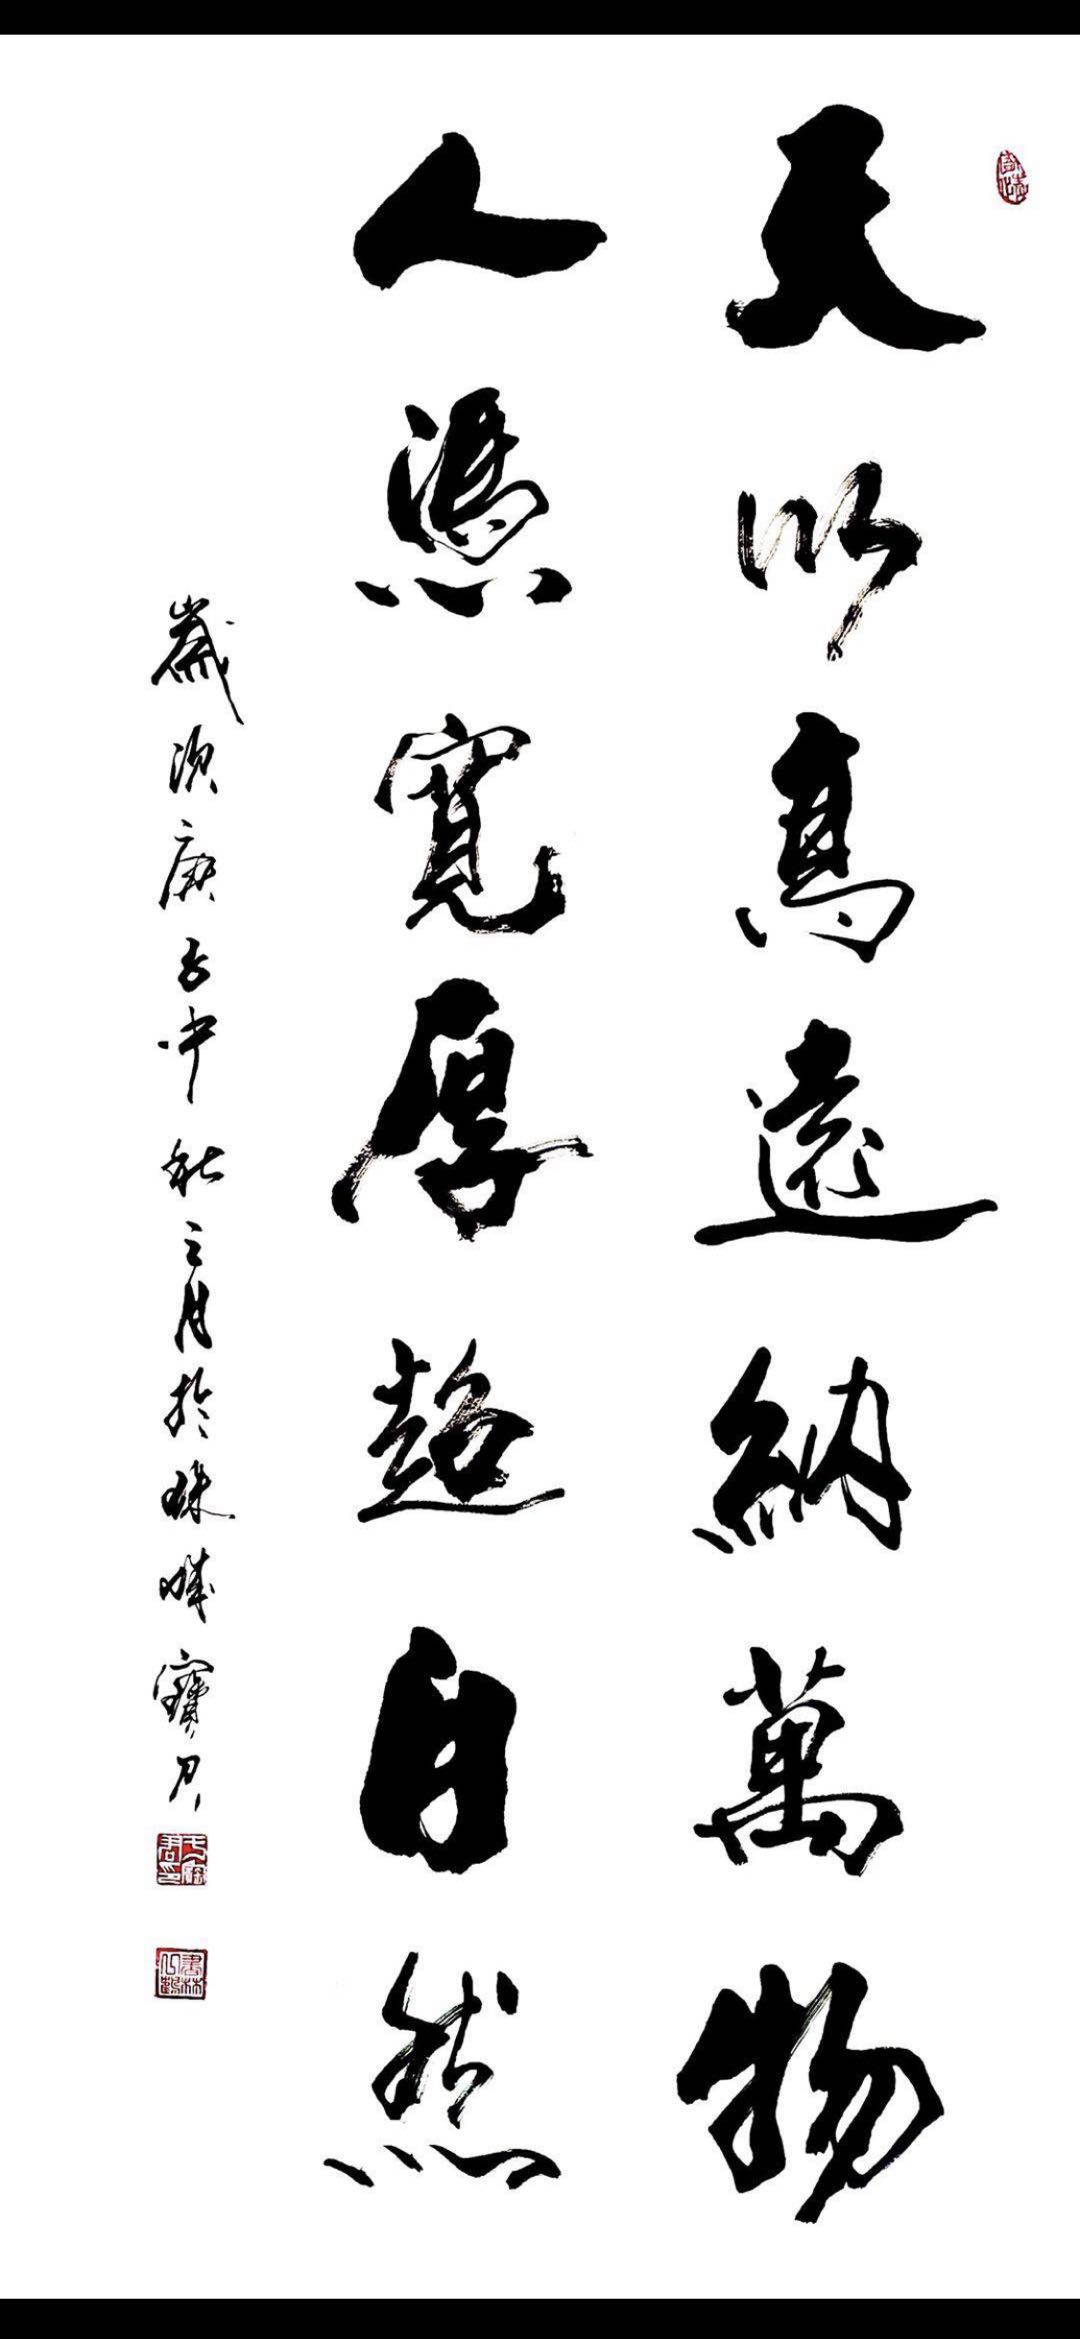 天以高遠納萬物
人憑寬厚超自然
歲次庚子中秋之月於珠城寶君